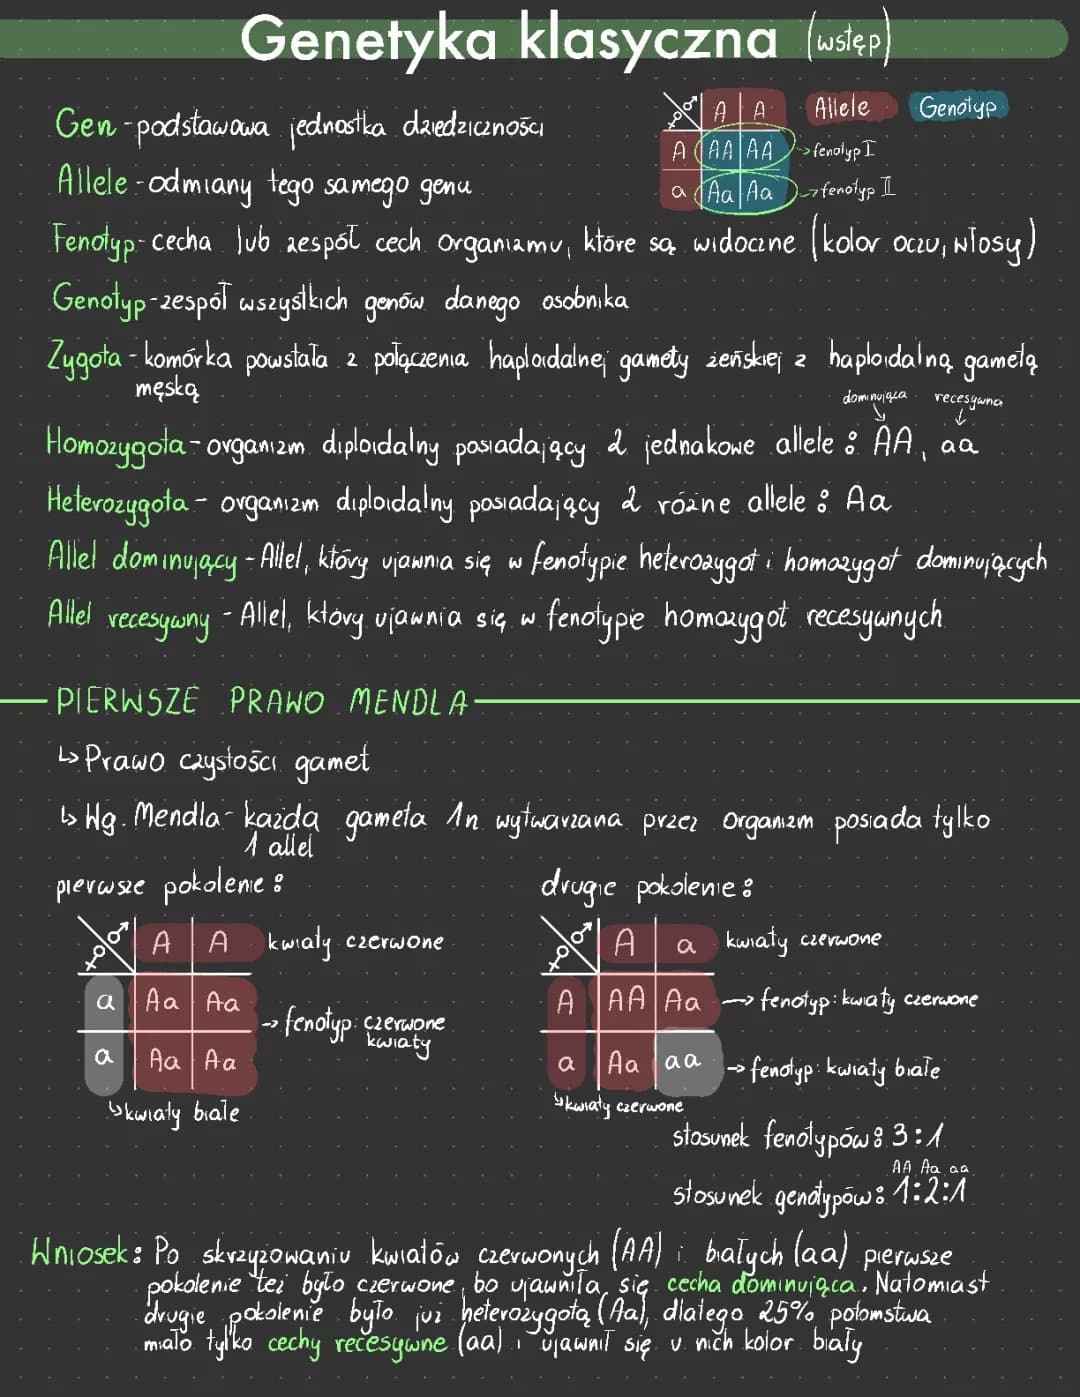 Genetyka klasyczna (wstęp)
Gen - podstawowa jednostka dziedziczności
Allele - odmiany tego samego genu
A A Allele Genotyp
A AA AA -> fenotyp I
a Aa Aa -> fenotyp II
Fenotyp - cecha lub zespół cech organizmu, które są widoczne (kolor oczu, włosy)
Genotyp - zespół wszystkich genów danego osobnika
Zygota - komórka powstała z połączenia haploidalnej gamety żeńskiej z haploidalną gametą
męską
dominująca recesywna
Homozygota - organizm diploidalny posiadający 2 jednakowe allele: AA, aa
Heterozygota - organizm diploidalny posiadający 2 różne allele: Aa
Allel dominujący - Allel, który ujawnia się w fenotypie heterozygot i homozygot dominujących
Allel recesywny - Allel, który ujawnia się w fenotypie homozygot recesywnych
PIERWSZE PRAWO MENDLA
↳ Prawo czystości gamet
↳ Wg. Mendla - każda gameta 1n wytwarzana przez organizm posiada tylko
1 allel
pierwsze pokolenie:
♀♂ A A kwiaty czerwone
a Aa Aa
-> fenotyp: czerwone
kwiaty
a Aa Aa
↳ kwiaty białe
drugie pokolenie:
♀♂ A a kwiaty czerwone
A AA Aa -> fenotyp: kwiaty czerwone
a Aa aa -> fenotyp: kwiaty białe
↳ kwiaty czerwone
stosunek fenotypów: 3:1
AA Aa aa
stosunek genotypów: 1:2:1
Wniosek: Po skrzyżowaniu kwiatów czerwonych (AA) i białych (aa) pierwsze
pokolenie też było czerwone, bo ujawniła się cecha dominująca. Natomiast
drugie pokolenie było już heterozygotą (Aa), dlatego 25% potomstwa
miało tylko cechy recesywne (aa) i ujawnił się u nich kolor biały